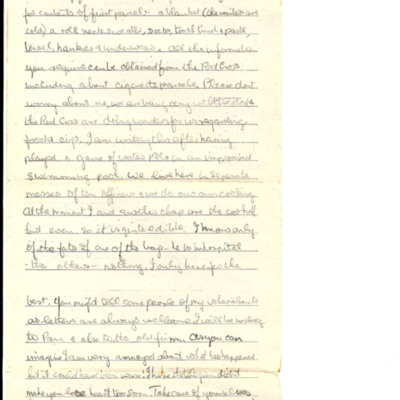 for contents of first parcel a blanket (the winters are
cold) a roll neck sweater, socks, tooth brush & paste,
towel, hankies & underwear. All the information
you require can be obtained from the Red Cross
including about cigarette parcels. Please dont
worry about me, we are being very well treated
the Red Cross are doing wonders for us regarding
food & cigs. I am writing this after having
played a game of water Polo in an improvised
swimming pool. We live here in separate
messes of ten officers & we do our own cooking
At the moment I and another chap are the cooks
but even so it is quite edible. I know only
of the fate of one of the the crew. He is in hospital
- the others - nothing, I only hope for the
best. You might tell some people of my whereabouts
as letters are always welcome. I will be writing
to Pam & also to the old firm. As you can
imagine I am very annoyed about what has happened
but it could have been worse. I hope the telegram didnt
make you lose heart too soon. Take care of yourselves